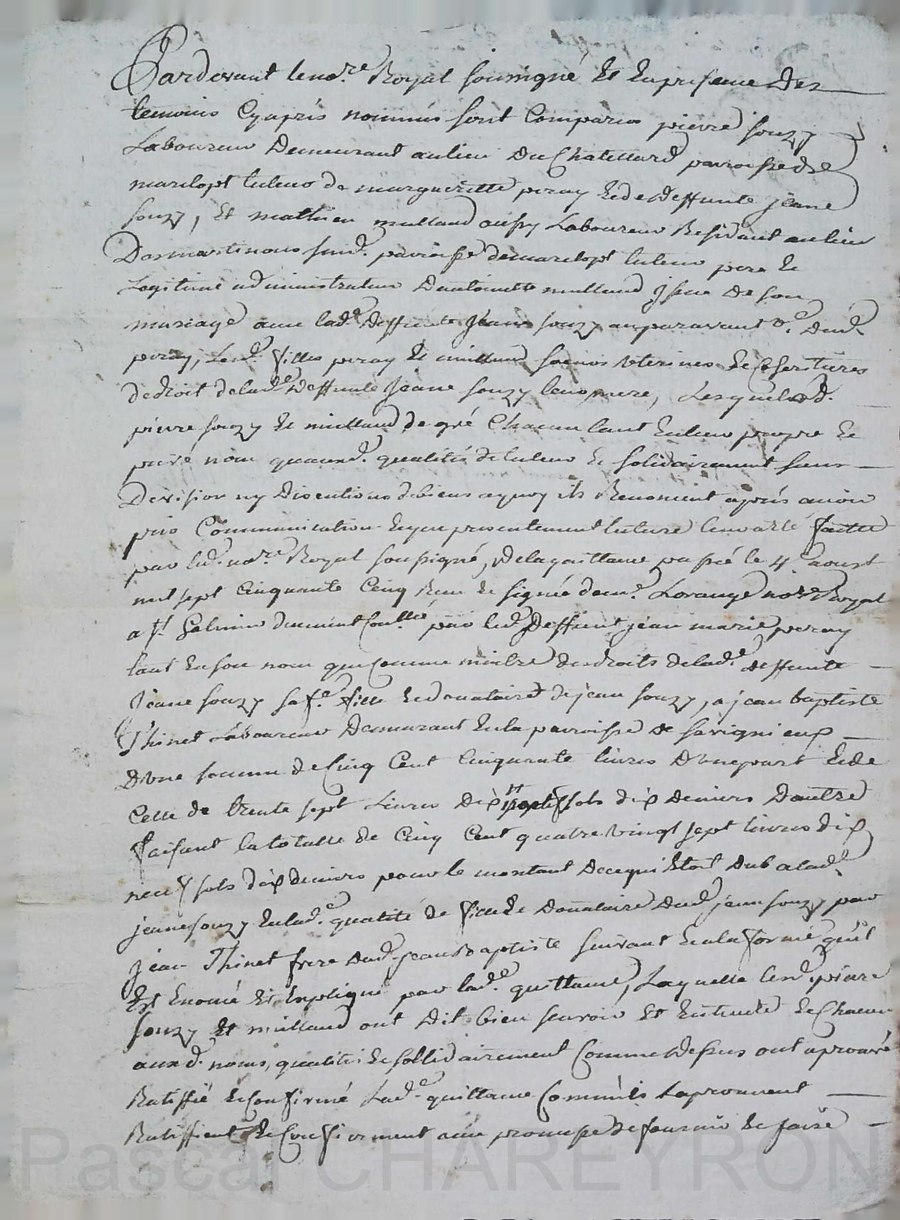 Pardevant le no.re Royal soussigné Et en presence des
temoins Cyaprès nommés sont Comparus pierre souzy
Laboureur Demeurant au lieu Du Chatellard parroisse de
marclopt tuteur de margueritte peray Et de deffunte jeanne
souzy, Et mathieu milland aussy Laboureur Residant au lieu
Desmartinous parroisse de marclopt tuteur pere Et
Legitime administrateur D'antoinette milland Issue De son
mariage avec lad.e Deffunte Jeanne souzy auparavant v.e Dud.
peray, Lesd. filles peray Et milland soeurs uterines Et Heritieres
de droit de lad.e Deffunte Jeanne souzy leur mere, Lesquels d.
pierre souzy Et milland de gré Chacun tant En leur propre Et
privé nom qu'auxd. qualités de tuteur Et solidairement sans
Division ny Discutions de biens a quoy ils Renoncent après avoir
pris Communication Et que presentement lecture leur a Eté faitte
par led. no.re Royal soussigné, De la quittance passé le 4.e aoust
mil sept Cinquante Cinq Reçue Et signée de m.e Lorange no.re Royal
a S.t Galmier dument Conllée par led. Deffunt jean marie peray
tant En son nom que comme maitre des droits de lad.e deffunte
Jeane souzy sa f.e fille Et donataire de jean souzy, a jean baptiste
Thinet Laboureur Demeurant En la parroisse de savignieux
D'une somme de Cinq Cent Cinquante livres D'une part Et de
Celle de trente sept Livres Dix sols dix Deniers D'autre
faisant la totalle de Cinq Cent quatre vingt sept livres dix
neuf sols dix deniers pour le montant De ce qui Etoit Dub a lad.e
jeane souzy En lad.e qualité de fille Et Donataire Dud. jean souzy par
Jean Thinet frere Dud. jean Baptiste suivant Et a la forme qu'il
Est Enoncé Et Expliqué par lad.e quittance, Laquelle lesd. pierre
souzy Et milland ont Dit bien scavoir Et Entendre Et Chacun
auxd. noms, qualités Et sollidairement Comme Dessus ont aprouvé
Ratiffié Et Confirmé Lad.e quittance Comme ils L'aprouvent
Ratiffient Et Confirment avec promesse de fournir Et faire
Pascal CHAREYRON